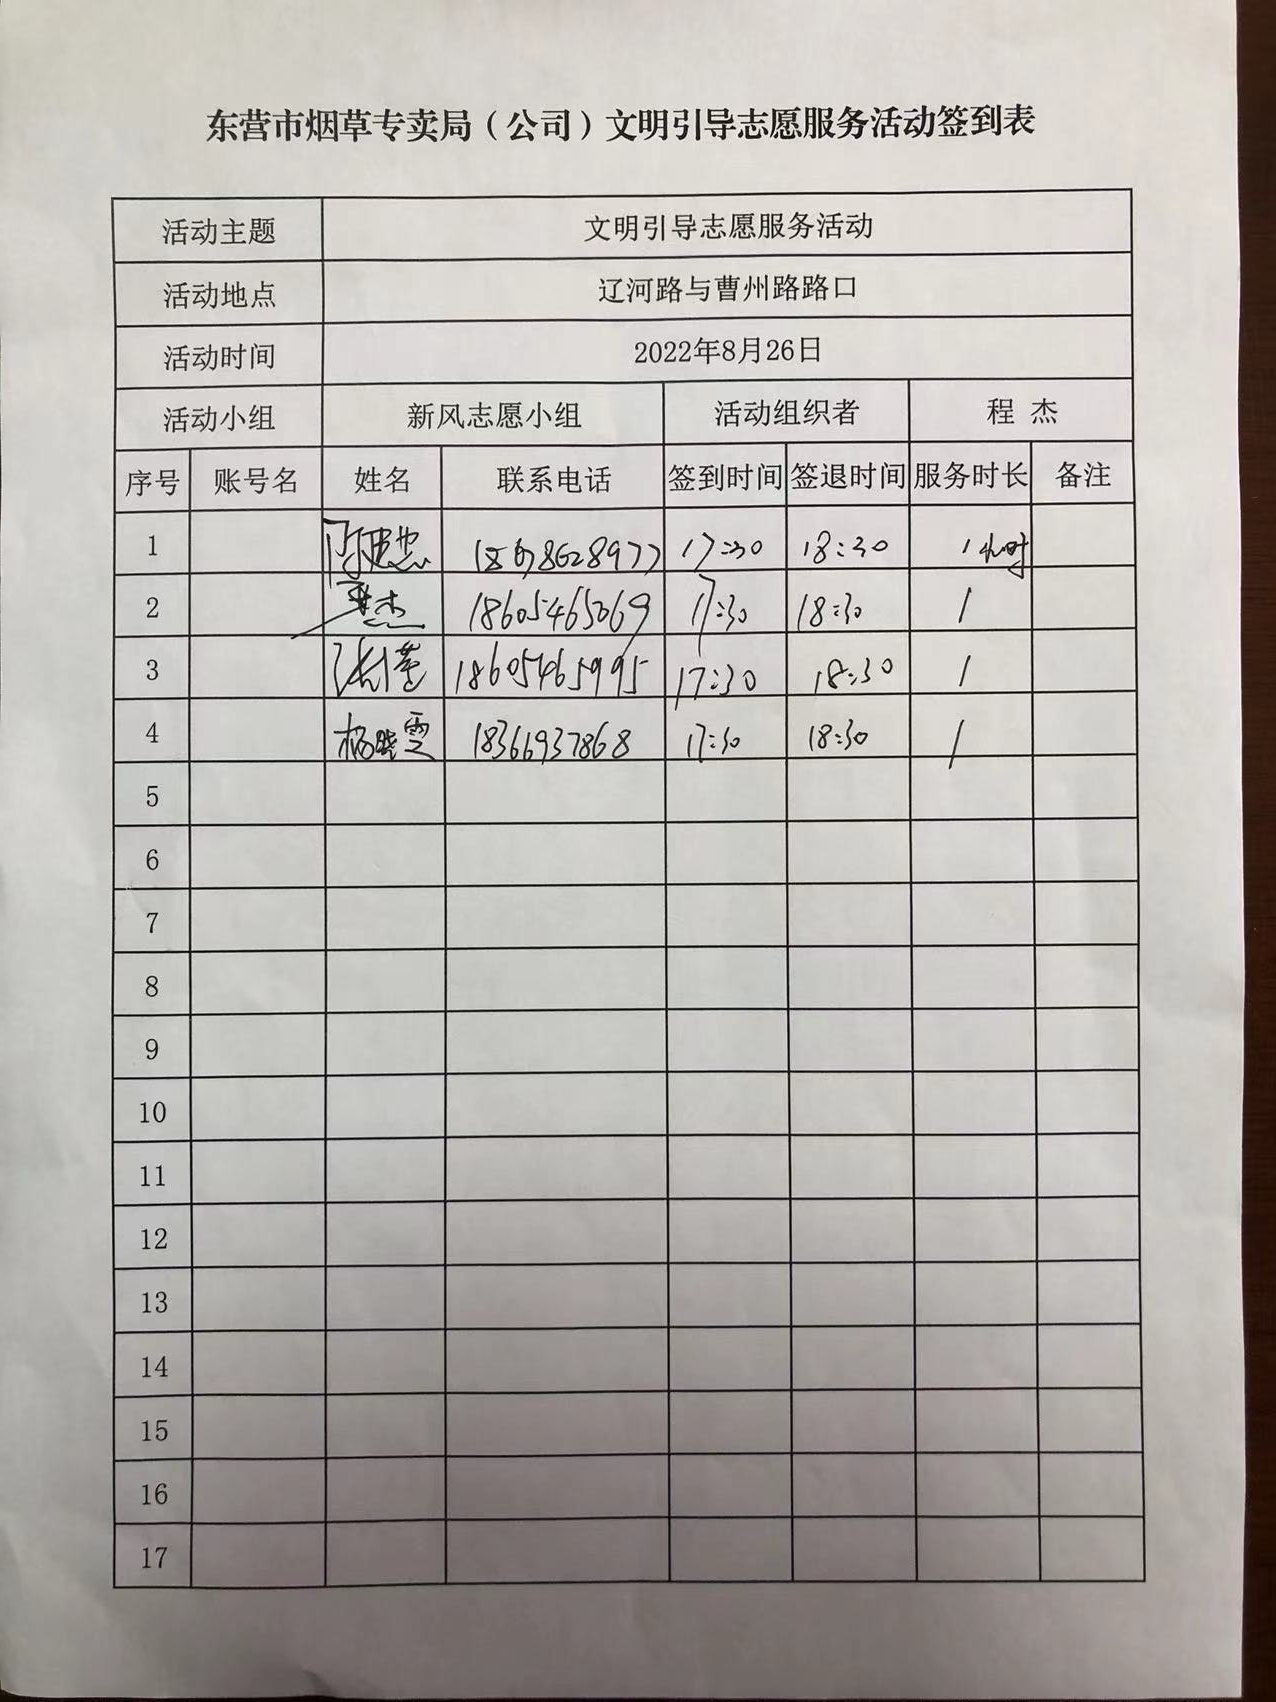 东营市烟草专卖局（公司）文明引导志愿服务活动签到表
活动主题 文明引导志愿服务活动
活动地点 辽河路与曹州路路口
活动时间 2022年8月26日
活动小组 新风志愿小组 活动组织者 程 杰
序号 账号名 姓名 联系电话 签到时间 签退时间 服务时长 备注
1 17:30 18:30 1小时
2 18605465069 17:30 18:30 1
3 18605465995 17:30 18:30 1
4 杨晓雯 18366937868 17:30 18:30 1
5
6
7
8
9
10
11
12
13
14
15
16
17